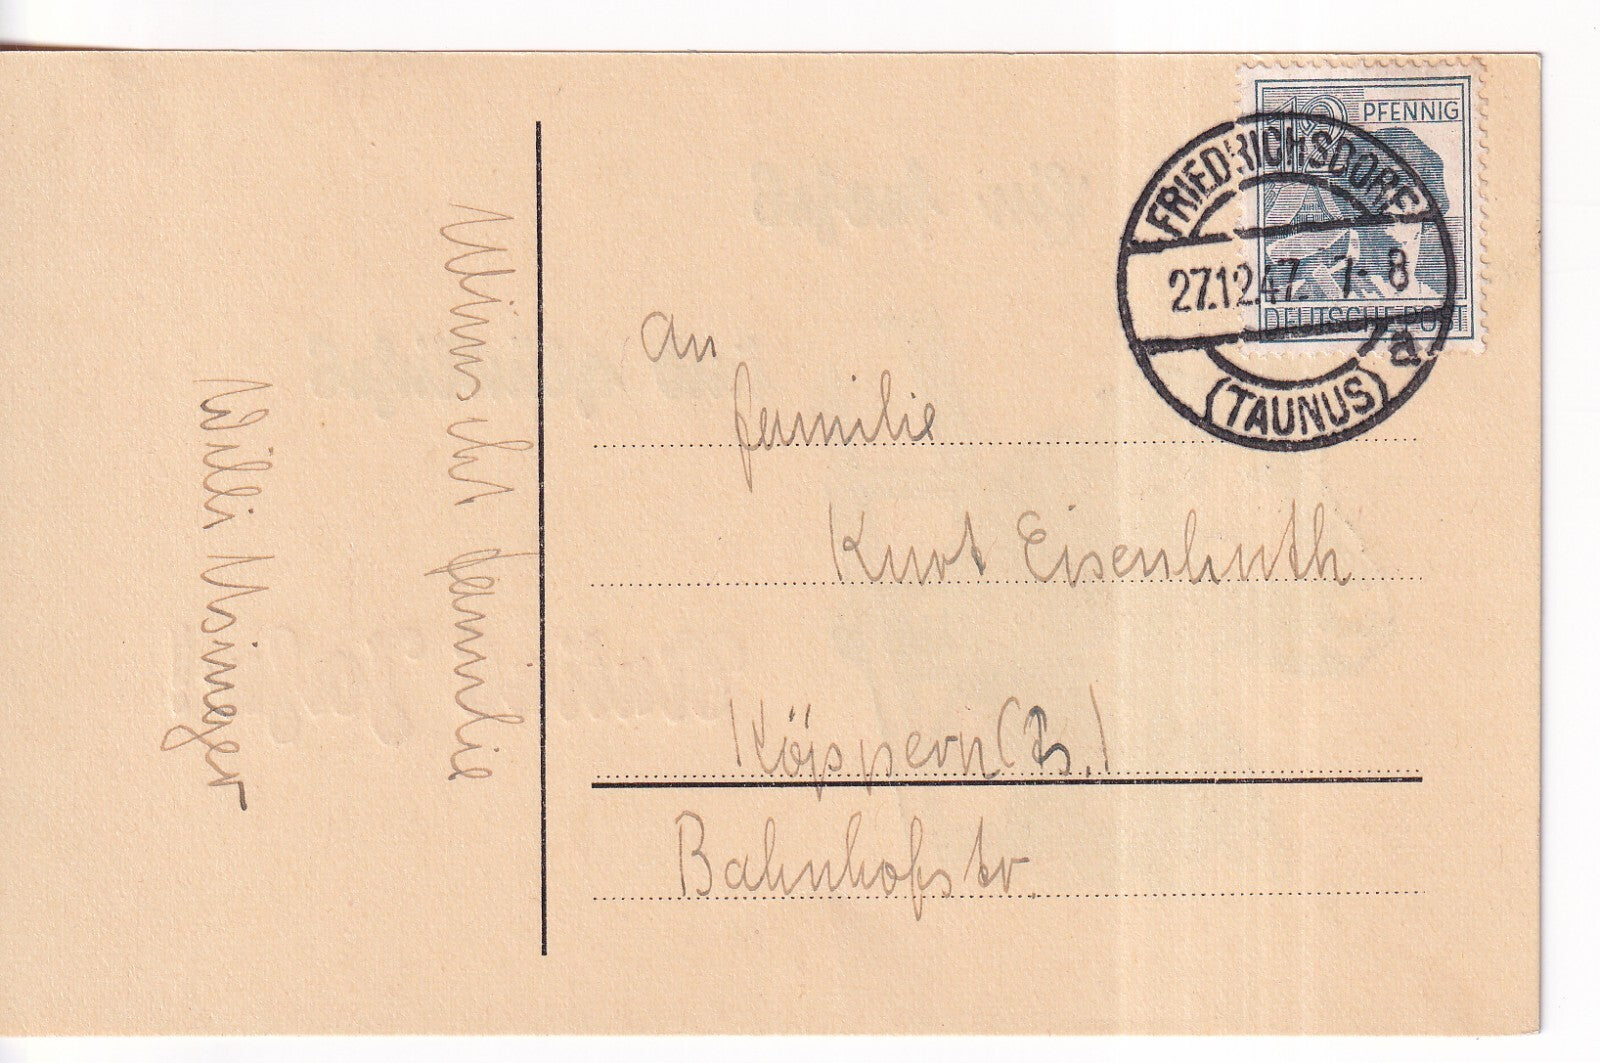 Wünscht Familie
Willi Usinger
12 PFENNIG
DEUTSCHE POST
FRIEDRICHSDORF
27.12.47. 7-8
a
(TAUNUS)
An
Familie
Kurt Eisenhuth
Köppern (Ts.)
Bahnhofstr.